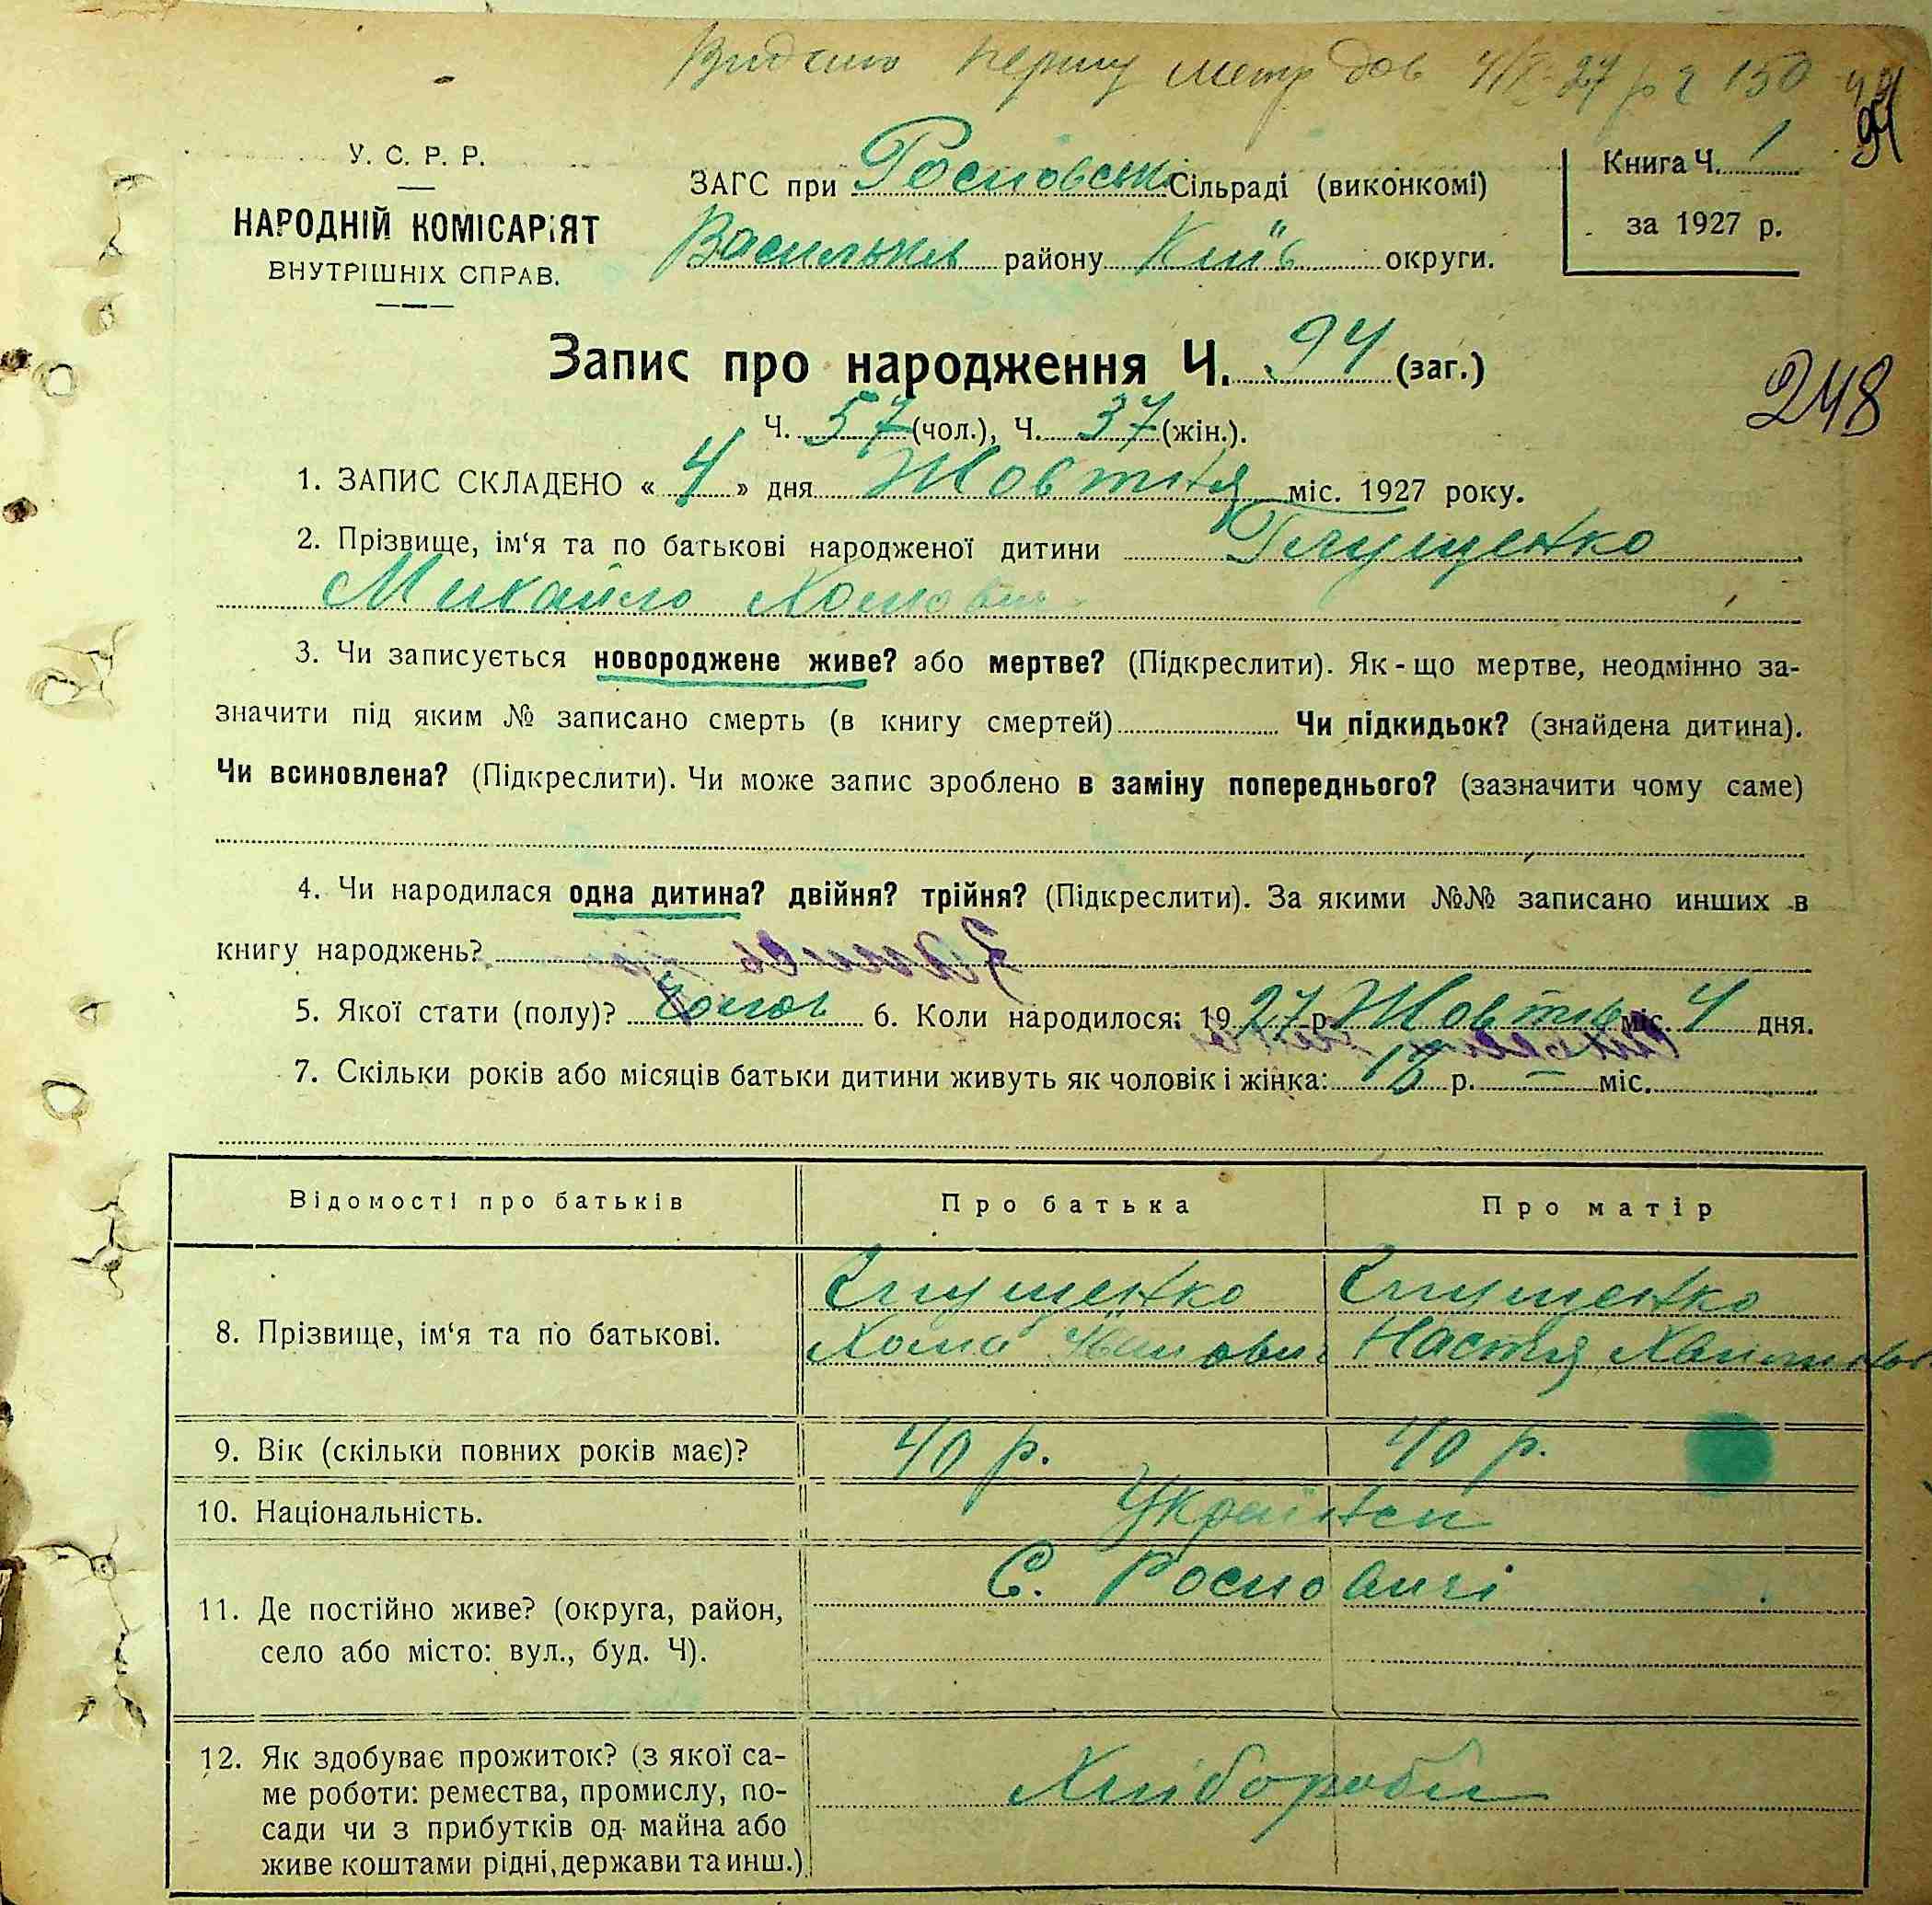 Видано першу метр дов 4/X-27 р 2 150
94
У. С. Р. Р.
НАРОДНІЙ КОМІСАРІЯТ
ВНУТРІШНІХ СПРАВ.
ЗАГС при Росновськ Сільраді (виконкомі)
Васильків району Київ округи.
Книга Ч. 1
за 1927 р.
Запис про народження Ч. 94 (заг.)
248
Ч. 57 (чол.), Ч. 37 (жін.).
1. ЗАПИС СКЛАДЕНО « 4 » дня Жовтня міс. 1927 року.
2. Прізвище, ім‘я та по батькові народженої дитини Глущенко
Михайло Хомович
3. Чи записується новороджене живе? або мертве? (Підкреслити). Як-що мертве, неодмінно за-
значити під яким № записано смерть (в книгу смертей) Чи підкидьок? (знайдена дитина).
Чи всиновлена? (Підкреслити). Чи може запис зроблено в заміну попереднього? (зазначити чому саме)
4. Чи народилася одна дитина? двійня? трійня? (Підкреслити). За якими №№ записано инших в
книгу народжень?
5. Якої стати (полу)? Чолов 6. Коли народилося: 1927 р. Жовтня міс. 4 дня.
7. Скільки років або місяців батьки дитини живуть як чоловік і жінка: 18 р. — міс.
Відомості про батьків Про батька Про матір
8. Прізвище, ім‘я та по батькові.
Глущенко Глущенко
Хома Іванович Настя
9. Вік (скільки повних років має)? 40 р. 40 р.
10. Національність. Українси
11. Де постійно живе? (округа, район,
село або місто: вул., буд. Ч).
С. Росновичі
12. Як здобуває прожиток? (з якої са-
ме роботи: ремества, промислу, по-
сади чи з прибутків од майна або
живе коштами рідні, держави та инш.)
Хлібороби